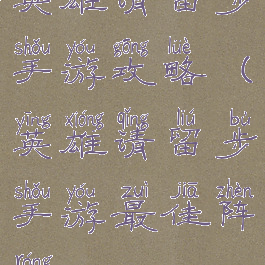 英雄请留步
shǒu yóu gōng lüè
手游攻略（
yīng xióng qǐng liú bù
英雄请留步
shǒu yóu zuì jiā zhèn
手游最佳阵
róng